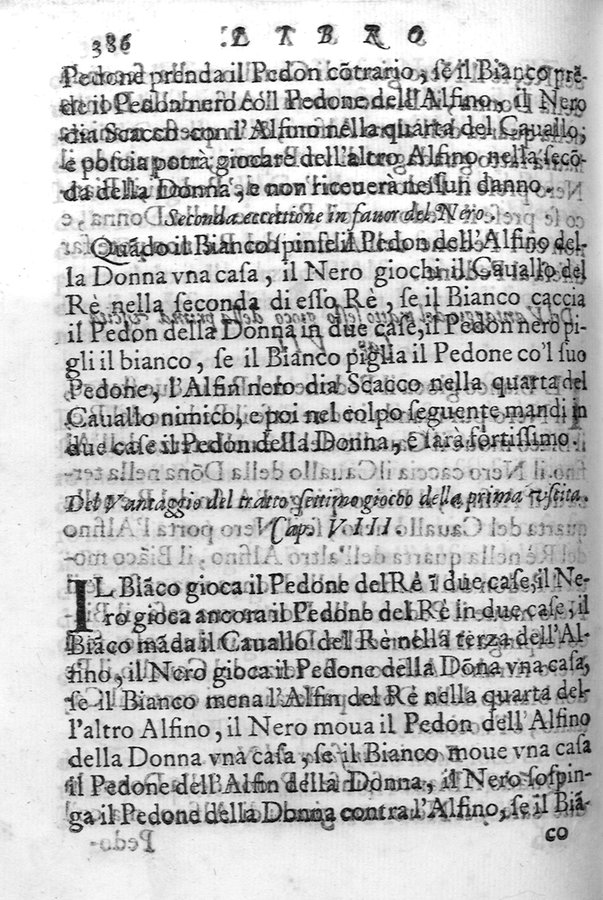 386 LIBRO
Pedone prenda il Pedon cõtrario, se il Bianco prẽ-
de il Pedon nero co'l Pedone dell'Alfino, il Nero
dia Scacco con l'Alfino nella quarta del Cauallo,
e poscia potrà giocare dell'altro Alfino nella seco-
da della Donna, e non riceuerà nessun danno.
Seconda eccettione in fauor del Nero.
Quãdo il Bianco spinse il Pedon dell'Alfino del-
la Donna vna casa, il Nero giochi il Cauallo del
Rè nella seconda di esso Rè, se il Bianco caccia
il Pedon della Donna in due case, il Pedon nero pi-
gli il bianco, se il Bianco piglia il Pedone co'l suo
Pedone, l'Alfin nero dia Scacco nella quarta del
Cauallo nimico, e poi nel colpo seguente mandi in
due case il Pedon della Donna, e sarà fortissimo.
Del Vantaggio del tratto settimo gioco della prima vscita.
Cap. VIII.
IL Biãco gioca il Pedone del Rè ĩ due case, il Ne-
ro gioca ancora il Pedone del Rè in due case, il
Biãco mãda il Cauallo del Rè nella terza dell'Al-
fino, il Nero gioca il Pedone della Dõna vna casa,
se il Bianco mena l'Alfin del Rè nella quarta del-
l'altro Alfino, il Nero moua il Pedon dell'Alfino
della Donna vna casa, se il Bianco moue vna casa
il Pedone dell'Alfin della Donna, il Nero sospin-
ga il Pedone della Donna contra l'Alfino, se il Biã-
co